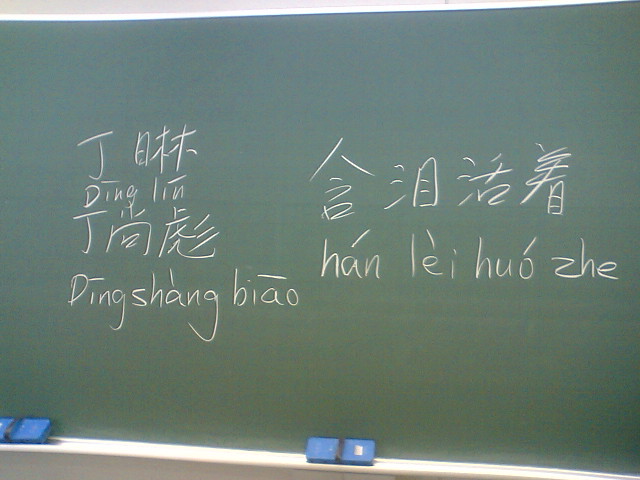 丁晽
Dīng lín
丁尚彪
Dīngshàng biāo
含泪活着
hán lèi huó zhe